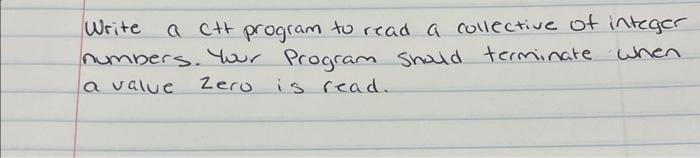 Write a C++ program to read a collective of integer
numbers. Your Program should terminate when
a value zero is read.